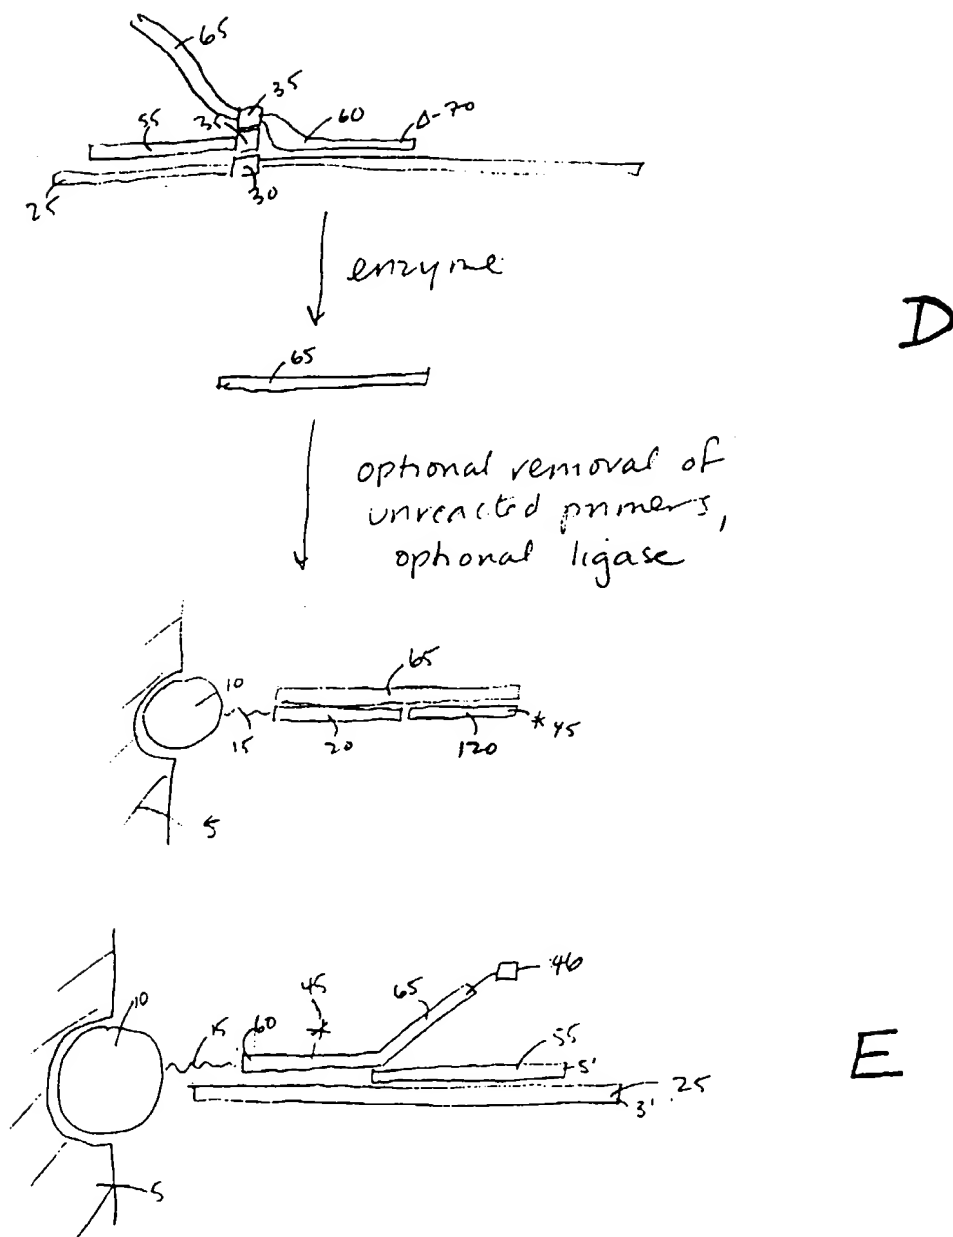 65
35
55
35
60
Δ-70
25
30
enzyme
D
65
optional removal of
unreacted primers,
optional ligase
65
10
15
20
120
* 45
5
46
45
65
10
15
60
*
55
5'
E
25
3'
5